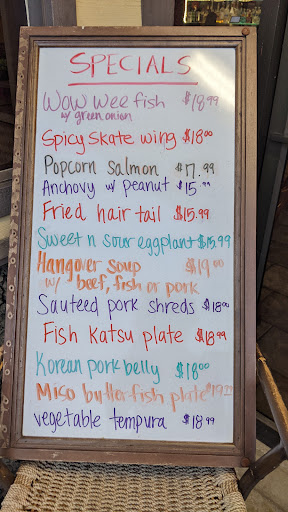 SPECIALS
Wow wee fish $18.99
w/ green onion
Spicy skate wing $18.00
Popcorn Salmon $7.99
Anchovy w/ peanut $15.99
Fried hair tail $15.99
Sweet n sour eggplant $15.99
Hangover soup $19.00
w/ beef, fish or pork
Sauteed pork shreds $18.00
Fish katsu plate $18.99
Korean pork belly $18.00
Miso butterfish plate $19.99
vegetable tempura $18.99